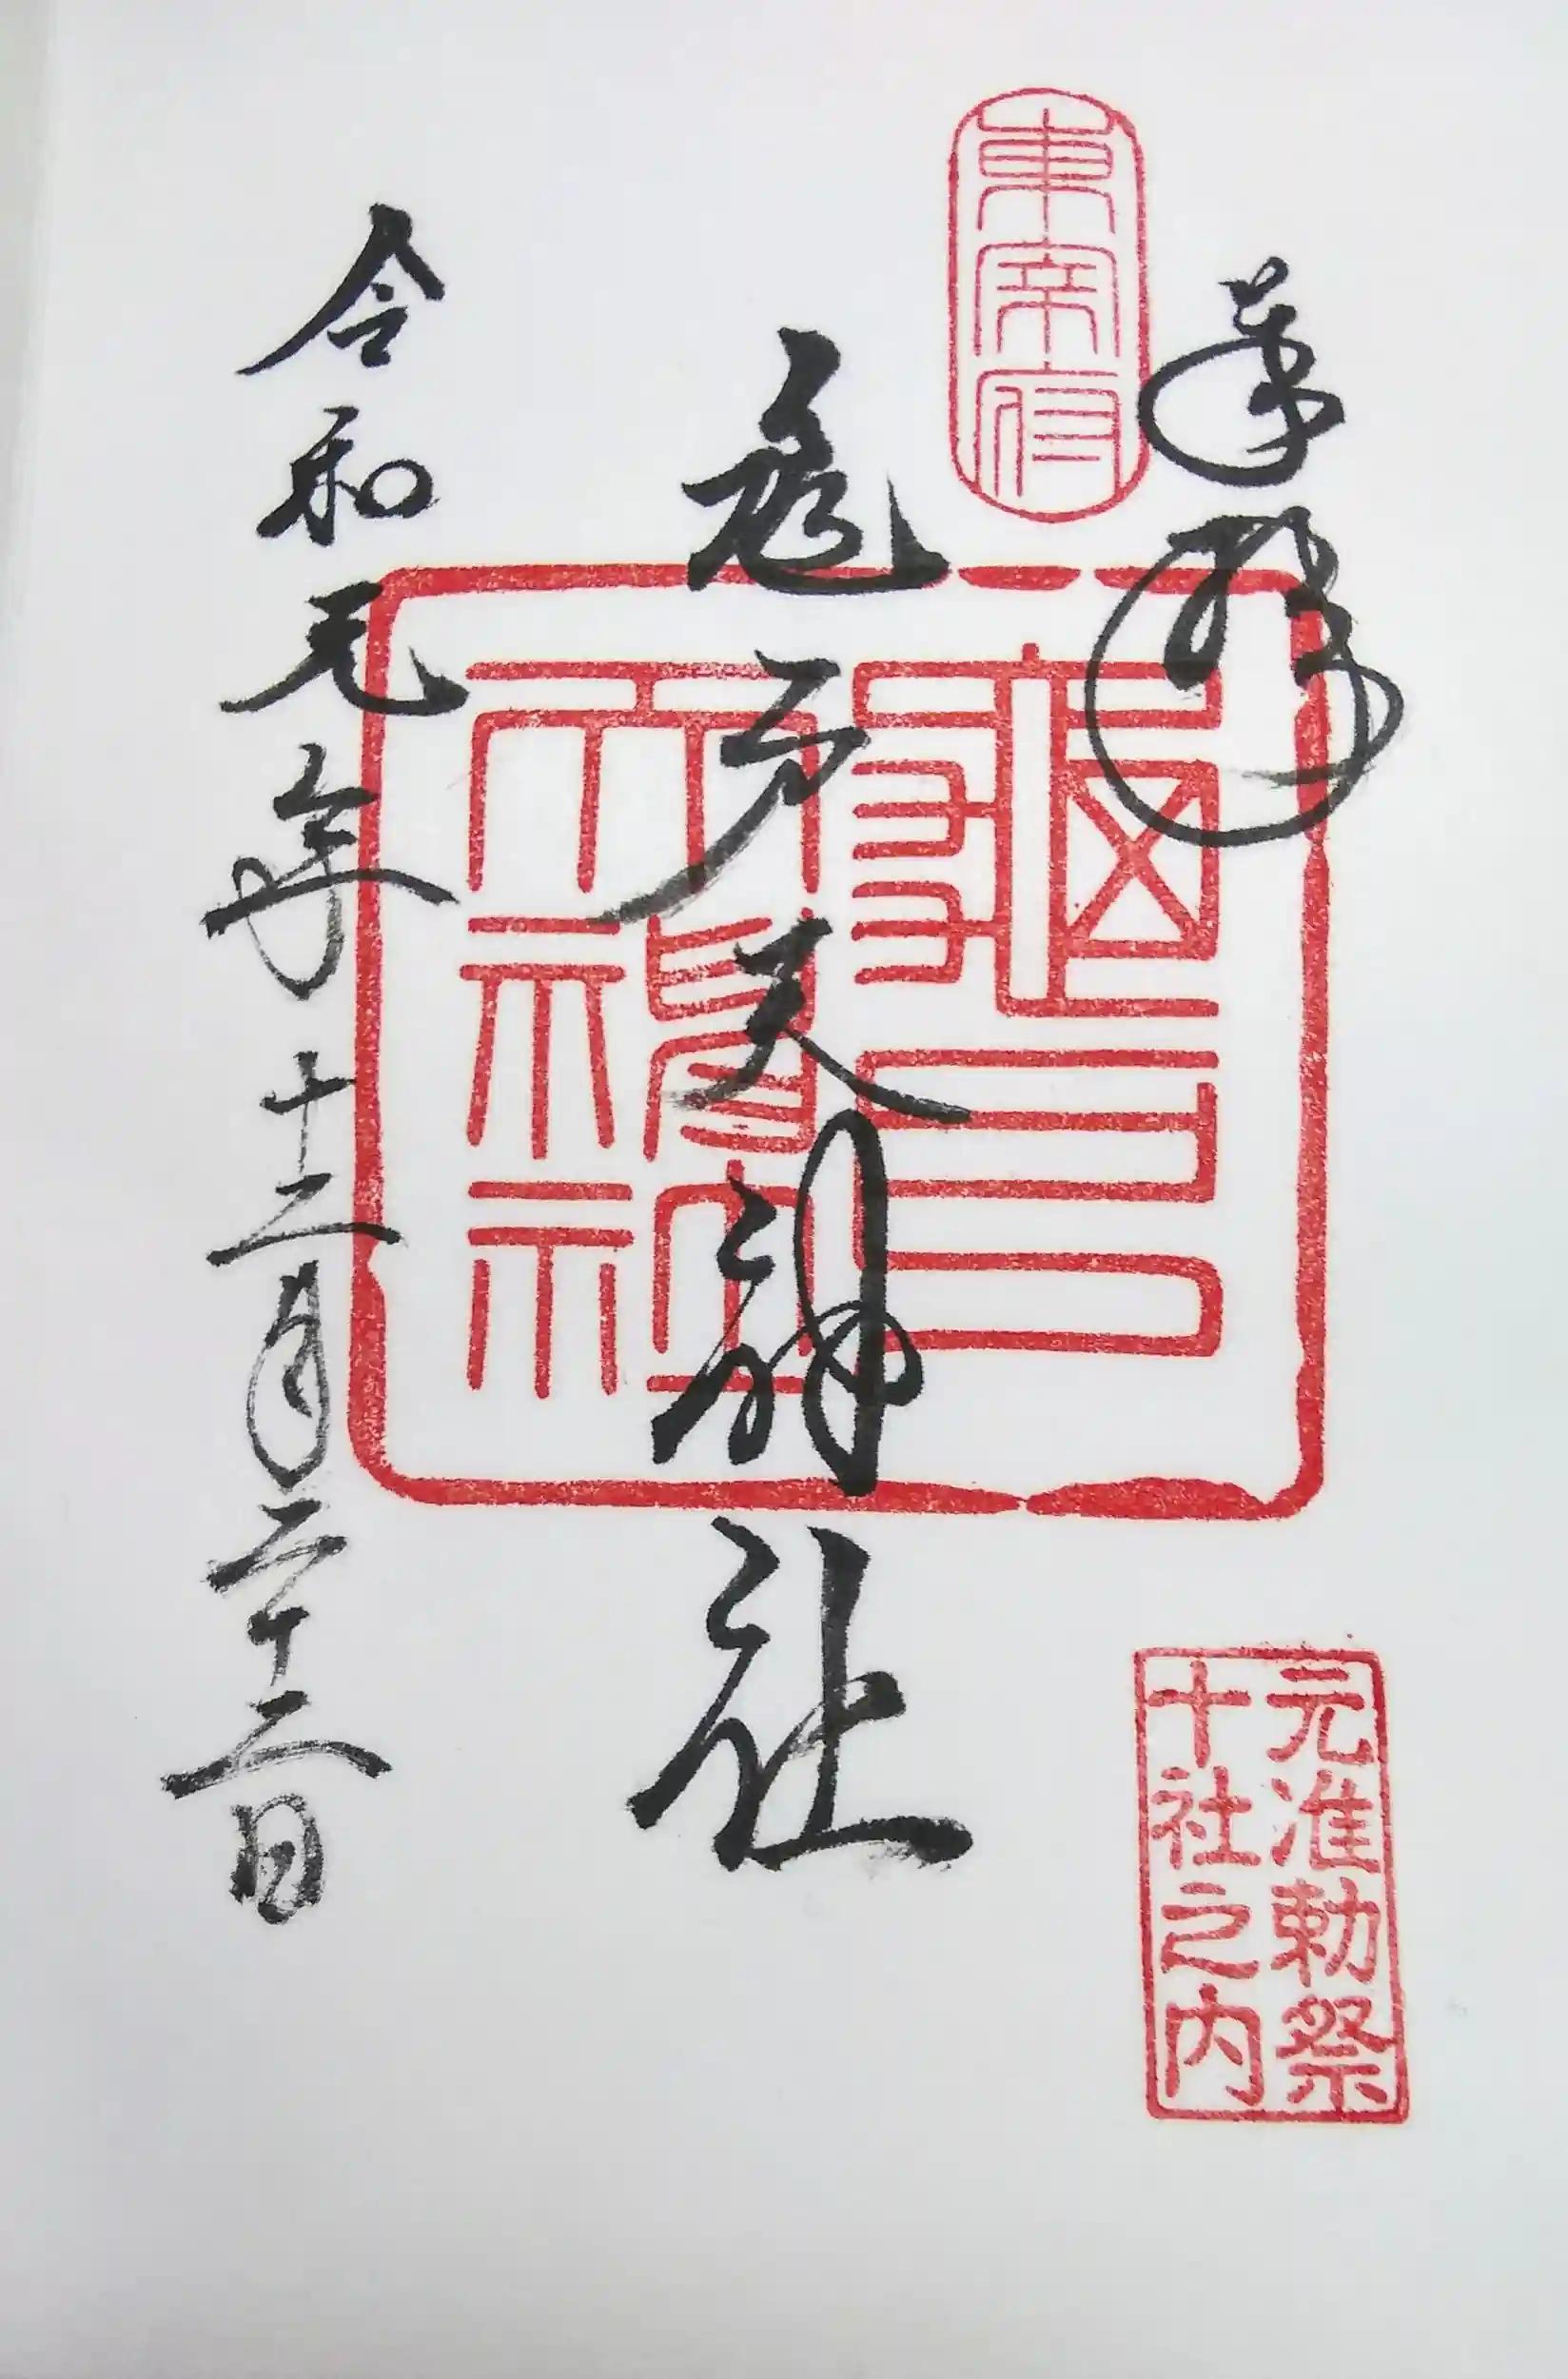 奉拝
東宰府
元准勅祭
十社之内
亀戸天神社
龜戸
天神社
令和元年十二月二十二日